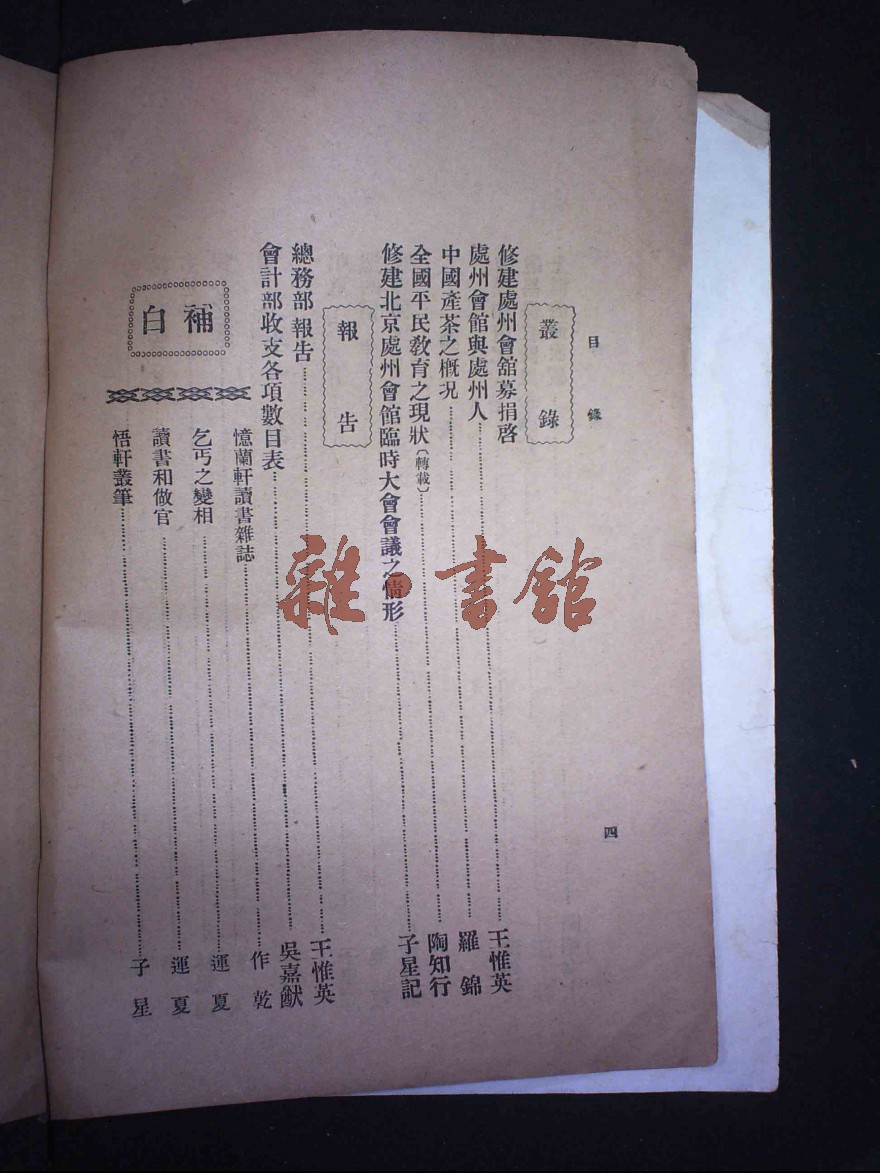 目錄
四
叢錄
修建處州會舘募捐啓
處州會館與處州人……王惟英
中國產茶之槪況……羅錦
全國平民敎育之現狀〔轉載〕……陶知行
修建北京處州會館臨時大會會議之情形……子星記
報告
總務部報告……王惟英
會計部收支各項數目表……吳嘉猷
補白
憶蘭軒讀書雜誌……作乾
乞丐之變相……運夏
讀書和做官……運夏
悟軒叢筆……子星
雜·書館